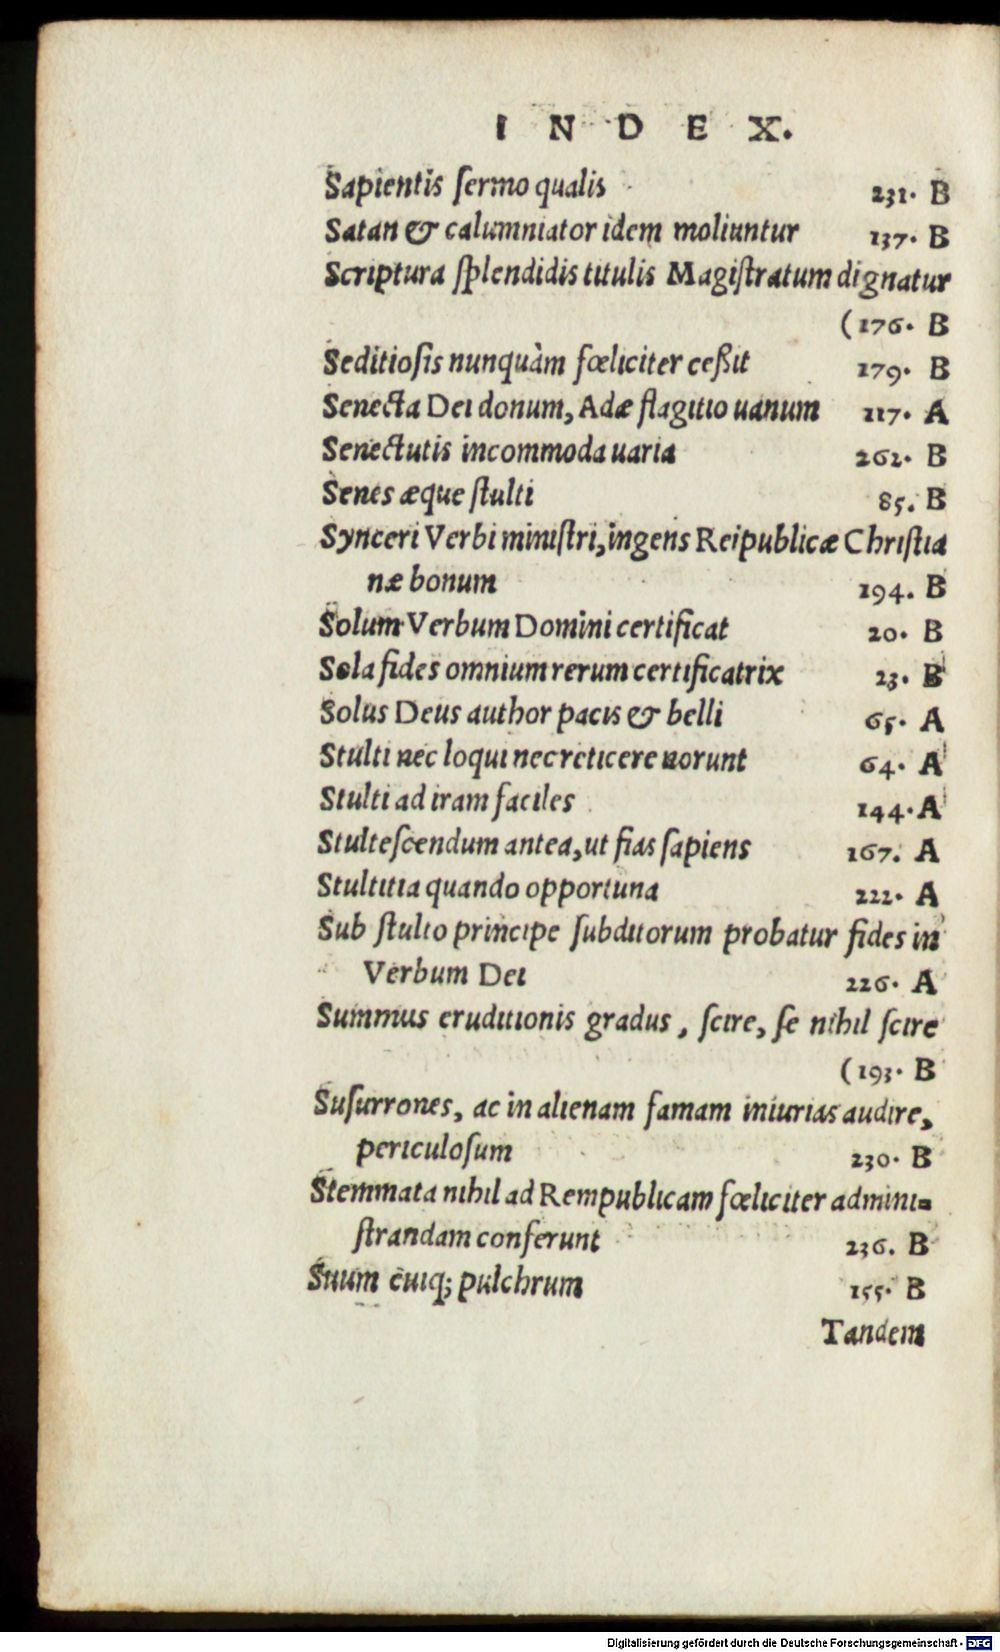 I N D E X.
Sapientis ſermo qualis 231. B
Satan & calumniator idem moliuntur 137. B
Scriptura ſplendidis titulis Magiſtratum dignatur
(176. B
Seditioſis nunquàm fœliciter ceßit 179. B
Senecta Dei donum, Adæ flagitio uanum 117. A
Senectutis incommoda uaria 262. B
Senes æque ſtulti 85. B
Synceri Verbi miniſtri, ingens Reipublicæ Chriſtia
næ bonum 194. B
Solum Verbum Domini certificat 20. B
Sola fides omnium rerum certificatrix 23. B
Solus Deus author pacis & belli 65. A
Stulti nec loqui nec reticere norunt 64. A
Stulti ad iram faciles 144. A
Stulteſcendum antea, ut fias ſapiens 167. A
Stultitia quando opportuna 222. A
Sub ſtulto principe ſubditorum probatur fides in
Verbum Dei 226. A
Summus eruditionis gradus, ſcire, ſe nihil ſcire
(193. B
Suſurrones, ac in alienam famam iniurias audire,
periculoſum 230. B
Stemmata nihil ad Rempublicam fœliciter admini=
ſtrandam conferunt 236. B
Suum cuiq; pulchrum 155. B
Tandem
Digitalisierung gefördert durch die Deutsche Forschungsgemeinschaft - DFG